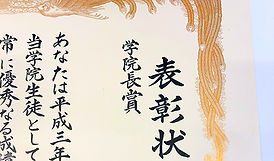 表彰状
学院長賞
あなたは平成三年
当学院生徒として
常に優秀なる成績